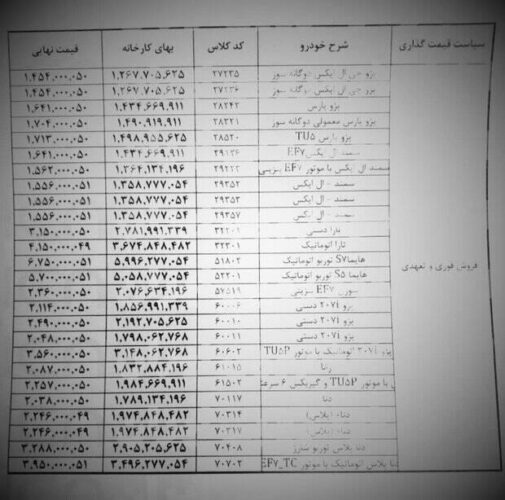 سیاست قیمت گذاری شرح خودرو کد کلاس بهای کارخانه قیمت نهایی
فروش فوری و تعهدی
پژو جی ال ایکس دوگانه سوز ۲۷۲۳۵ ۱,۲۶۷,۷۰۵,۶۲۵ ۱,۴۵۴,۰۰۰,۰۵۰
پژو جی ال ایکس دوگانه سوز ۲۷۲۳۶ ۱,۲۶۷,۷۰۵,۶۲۵ ۱,۴۵۴,۰۰۰,۰۵۰
پژو پارس ۲۸۲۴۲ ۱,۴۳۴,۶۶۹,۹۱۱ ۱,۶۴۱,۰۰۰,۰۵۰
پژو پارس معمولی دوگانه سوز ۲۸۳۲۱ ۱,۴۹۰,۹۱۹,۹۱۱ ۱,۷۰۴,۰۰۰,۰۵۰
پژو پارس TU۵ ۲۸۵۲۰ ۱,۴۹۸,۹۵۵,۶۲۵ ۱,۷۱۳,۰۰۰,۰۵۰
سمند ال ایکس EF۷ ۲۹۱۲۶ ۱,۴۳۴,۶۶۹,۹۱۱ ۱,۶۴۱,۰۰۰,۰۵۰
سمند ال ایکس با موتور EF۷ بنزینی ۱,۳۶۴,۱۳۴,۱۹۶ ۱,۵۶۲,۰۰۰,۰۵۰
سمند - ال ایکس ۲۹۳۵۲ ۱,۳۵۸,۷۷۷,۰۵۴ ۱,۵۵۶,۰۰۰,۰۵۱
سمند - ال ایکس ۲۹۳۵۳ ۱,۳۵۸,۷۷۷,۰۵۴ ۱,۵۵۶,۰۰۰,۰۵۱
سمند - ال ایکس ۲۹۳۵۷ ۱,۳۵۸,۷۷۷,۰۵۴ ۱,۵۵۶,۰۰۰,۰۵۱
تارا دستی ۳۲۲۰۱ ۲,۷۸۱,۹۹۱,۳۳۹ ۳,۱۵۰,۰۰۰,۰۵۰
تارا اتوماتیک ۳۲۳۰۱ ۳,۶۷۴,۸۴۸,۴۸۲ ۴,۱۵۰,۰۰۰,۰۴۹
هایما S۷ توربو اتوماتیک ۵۱۸۰۲ ۵,۹۹۶,۲۷۷,۰۵۴ ۶,۷۵۰,۰۰۰,۰۵۱
هایما S۵ توربو اتوماتیک ۵۲۲۰۱ ۵,۰۵۸,۷۷۷,۰۵۴ ۵,۷۰۰,۰۰۰,۰۵۱
سورن EF۷ بنزینی ۵۷۵۱۹ ۲,۰۷۶,۶۳۴,۱۹۶ ۲,۳۶۰,۰۰۰,۰۵۰
پژو ۲۰۷i دستی ۶۰۰۰۶ ۱,۸۵۶,۹۹۱,۳۳۹ ۲,۱۱۴,۰۰۰,۰۵۰
پژو ۲۰۷i دستی ۶۰۰۱۰ ۲,۱۹۲,۷۰۵,۶۲۵ ۲,۴۹۰,۰۰۰,۰۵۰
پژو ۲۰۷i دستی ۶۰۰۱۱ ۱,۷۹۸,۰۶۲,۷۶۸ ۲,۰۴۸,۰۰۰,۰۵۰
پژو ۲۰۷i اتوماتیک با موتور TU۵P ۶۰۶۰۲ ۳,۱۴۸,۰۶۲,۷۶۸ ۳,۵۶۰,۰۰۰,۰۵۰
رانا ۶۱۰۱۵ ۱,۸۳۲,۸۸۴,۱۹۶ ۲,۰۸۷,۰۰۰,۰۵۰
با موتور TU۵P و گیربکس ۶ سرعته ۶۱۵۰۲ ۱,۹۸۴,۶۶۹,۹۱۱ ۲,۲۵۷,۰۰۰,۰۵۰
دنا ۷۰۱۱۷ ۱,۷۸۹,۱۳۴,۱۹۶ ۲,۰۳۸,۰۰۰,۰۵۰
دنا+ (پلاس) ۷۰۳۱۴ ۱,۹۷۴,۸۴۸,۴۸۲ ۲,۲۴۶,۰۰۰,۰۴۹
دنا+ (پلاس) ۷۰۳۱۷ ۱,۹۷۴,۸۴۸,۴۸۲ ۲,۲۴۶,۰۰۰,۰۴۹
دنا پلاس توربو شارژ ۷۰۴۰۸ ۲,۹۰۵,۲۰۵,۶۲۵ ۳,۲۸۸,۰۰۰,۰۵۰
دنا پلاس اتوماتیک با موتور EF۷_TC ۷۰۷۰۲ ۳,۴۹۶,۲۷۷,۰۵۴ ۳,۹۵۰,۰۰۰,۰۵۱